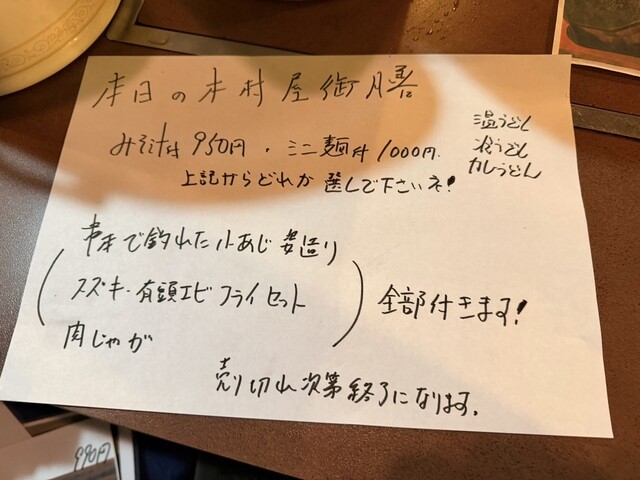 本日の木村屋御膳
みそ汁付 950円・ミニ麺付 1000円
温うどん
冷うどん
カレうどん
上記からどれか 選んで下さいネ!
で釣れた小あじ 姿造り
スズキ・有頭エビ フライセット
肉じゃが
全部付きます!
売り切れ次第終了になります。
990円